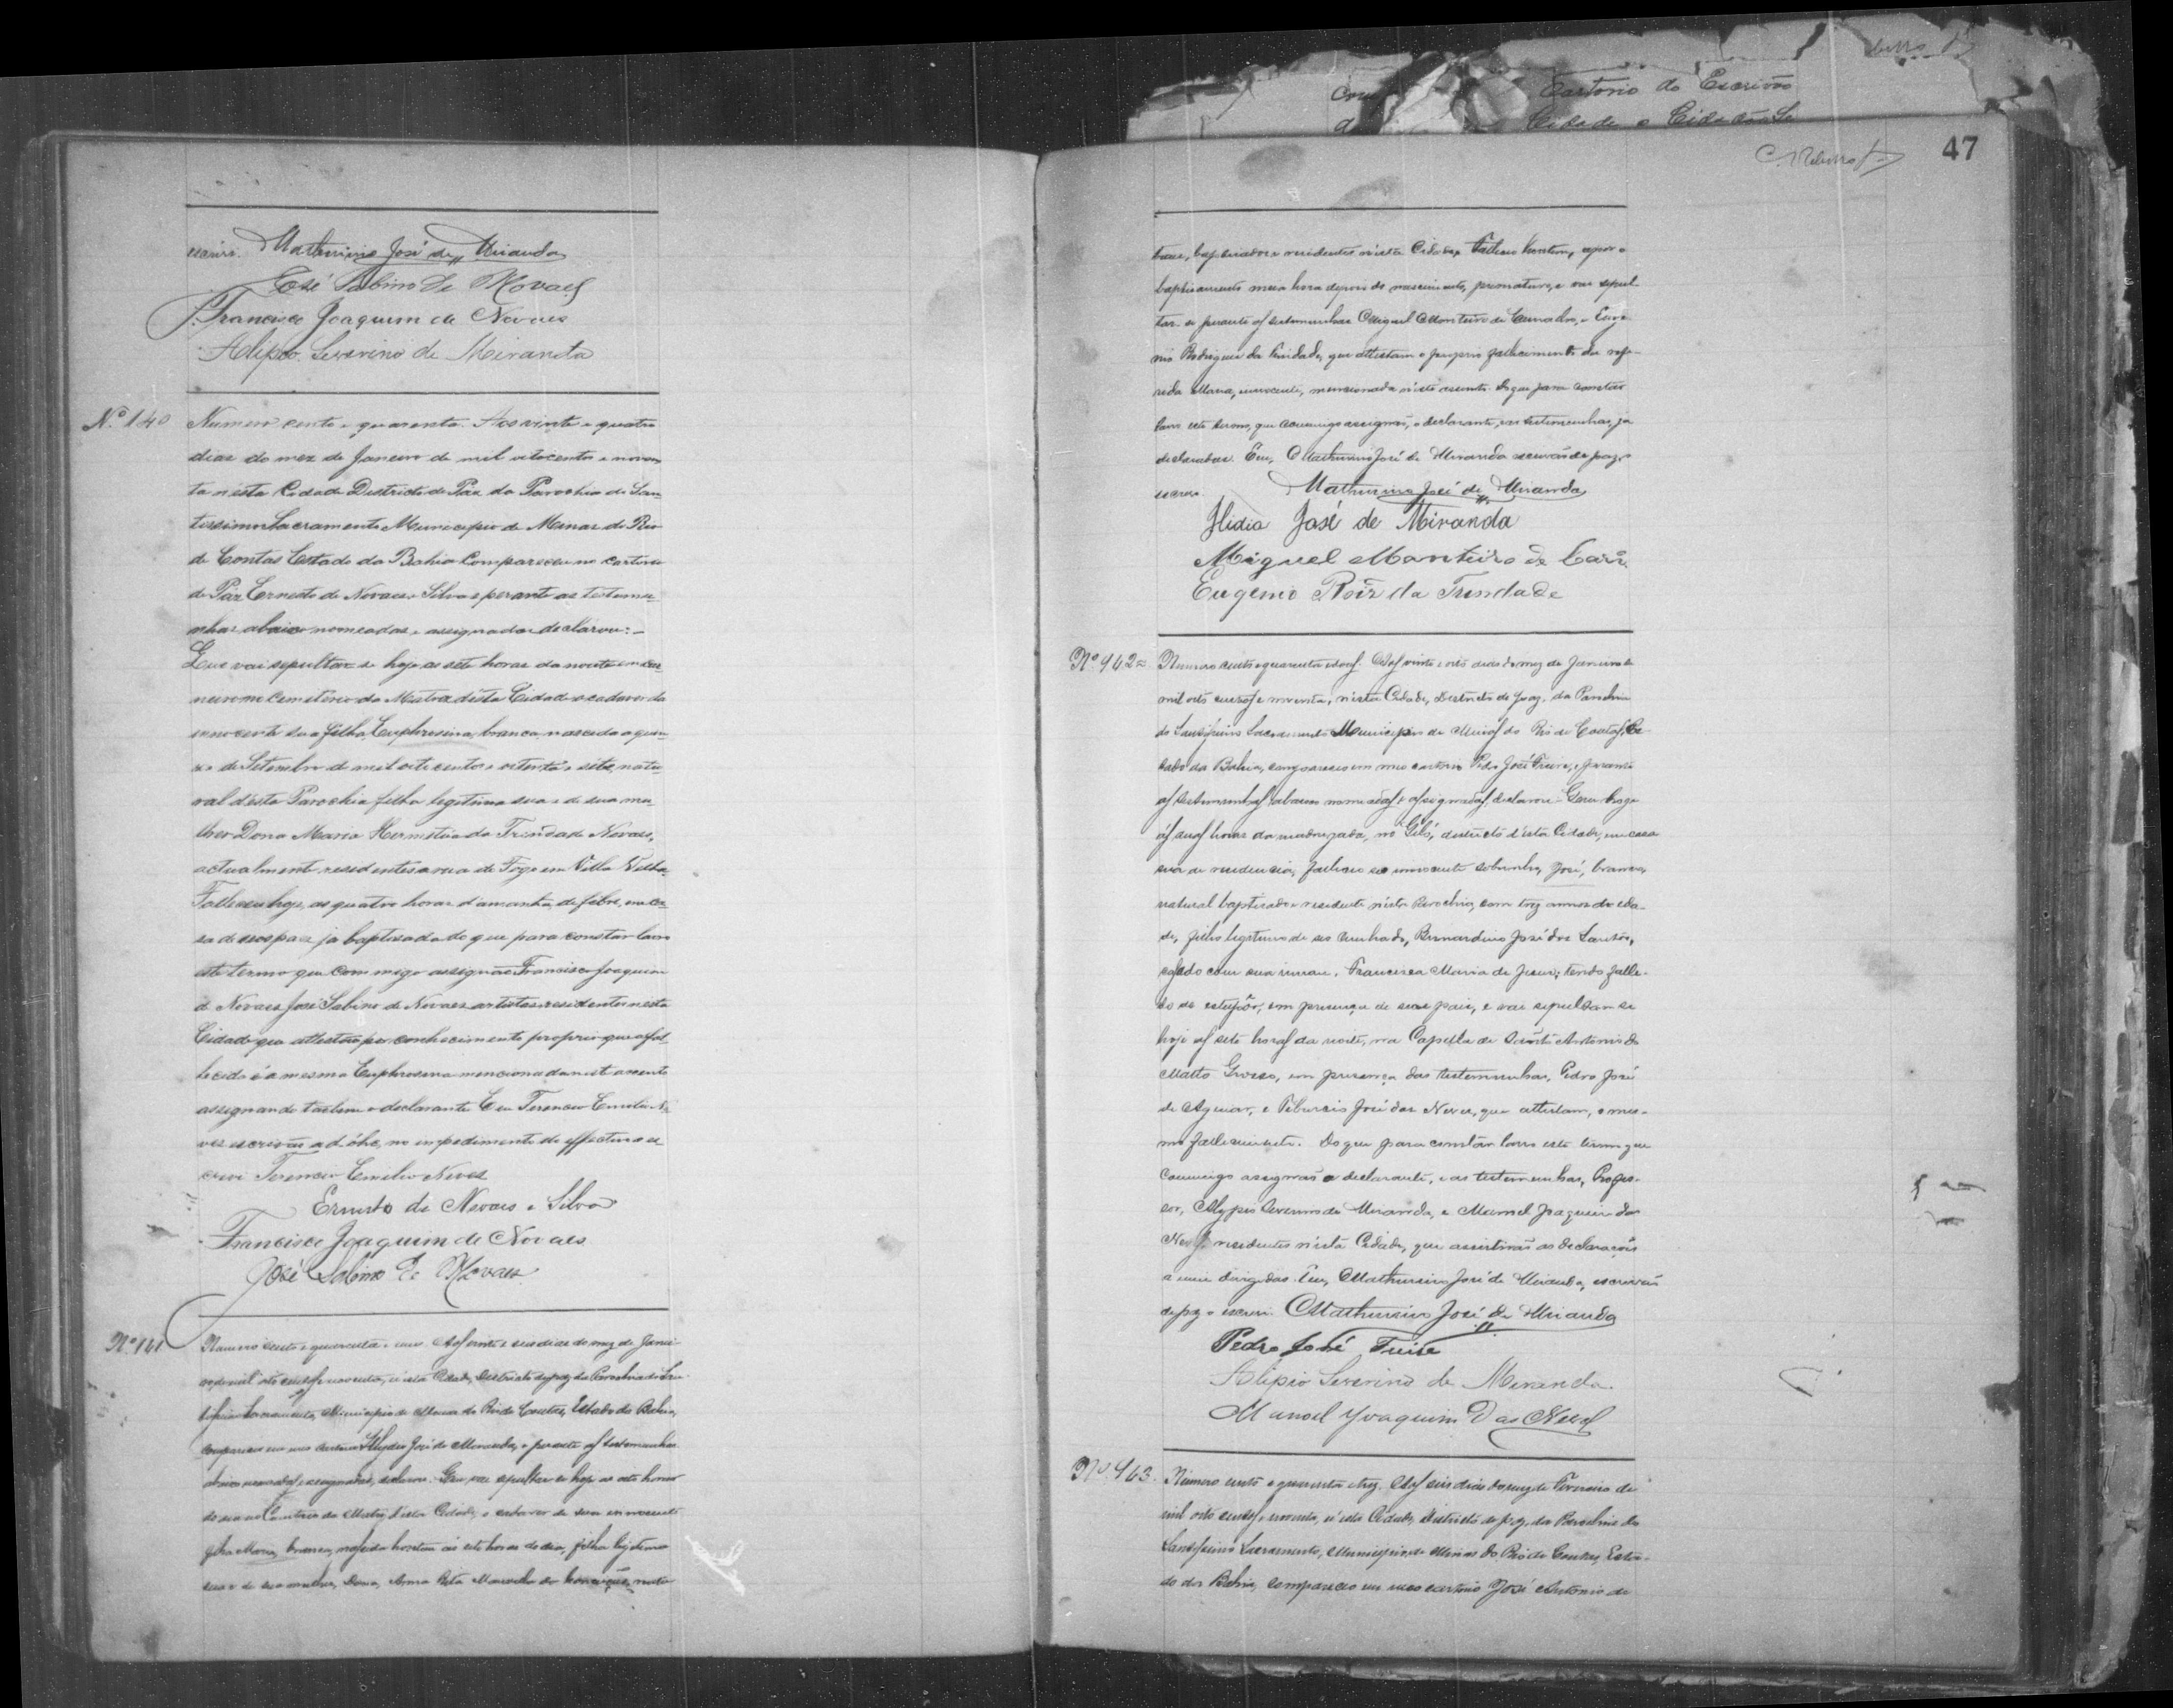 Cartorio do Escrivão
Cidade e Cidadão
47
escrevi. Mathurino José de Miranda
José Sabino de Novaes
Francisco Joaquim de Novaes
Alipio Severino de Miranda
Nº 140 Numero cento e quarenta. Aos vinte e quatro
dias do mez de Janeiro de mil oitocentos e noven
ta nésta Cidade Districto de Paz da Parochia do San
tissimo Sacramento Municipio de Minas do Rio
de Contas Estado da Bahia Compareceu no cartorio
de Paz Ernesto de Novaes e Silva e perante as testemu
nhas abaixo nomeadas e assignadas declarou:
Que vai sepultar-se hoje as sete horas da noute em car
neiro no Cemiterio da Matriz désta Cidade o cadaver da
innocente sua filha Euphrosina, branca, nascida a quin
ze de Setembro de mil oito centos e oitenta e sete, natu
ral désta Parochia filha legitima sua e de sua mu
lher Dona Maria Hermetia da Trindade Novaes,
actualmente residentes a rua do Fogo em Villa Velha
Falleceu hoje, as quatro horas d'amanhã, de febre, em ca
sa de seos paes já baptisada do que para constar lavro
este termo que commigo assignão Francisco Joaquim
de Novaes José Sabino de Novaes artistas residentes nesta
Cidade que attestão por conhecimento proprio que a fal
lecida é a mesma Euphrosina mencionada neste assento
assignando tambem o declarante Eu Terencio Emilio Ne
ves escrivão ad óhc, no impedimento do effectivo es
crevi Terencio Emilio Neves
Ernesto de Novaes e Silva
Francisco Joaquim de Novaes
José Sabino de Novaes
Nº 141 Numero cento e quarenta e um Aos vinte e seis dias do mez de Janei
ro de mil oito centos e noventa, n'esta Cidade, Districto de paz da Parochia do San
tissimo Sacramento, Municipio de Minas do Rio de Contas, Estado da Bahia,
compareceu em meo cartorio Illydio José de Miranda, e perante as testemunhas
abaixo nomeadas e assignadas, declarou. Que vae sepultar-se hoje as oito horas
do dia no Cemiterio da Matriz d'esta Cidade, o cadaver de sua innocente
filha Maria, branca, nascida hontem as sete horas do dia, filha legitima
sua e de sua mulher, Dona Anna Rita Maravilha da Conceição, natu
raes, baptisados e residentes n'esta Cidade. Falleceu hontem, apos o
baptisamento meia hora depois do nascimento, prematura, e vae sepul
tar-se perante as testemunhas Miguel Monteiro de Carvalho, e Euge-
nio Rodrigues da Trindade, que attestam o proprio fallecimento da refe-
rida Maria, innocente, mencionada n'este assento. Do que para constar
lavro este termo, que commigo assignão, o declarante, e as testemunhas, já
declaradas. Eu, Mathurino José de Miranda escrivão de paz, o
escrevi. Mathurino José de Miranda
Ilidio José de Miranda
Miguel Monteiro de Carº
Eugenio Roiz da Trindade
Nº 142 Numero cento e quarenta e dous. Aos vinte e oito dias do mez de Janeiro de
mil oito centos e noventa, n'esta Cidade, Districto de paz, da Parochia
do Santissimo Sacramento Municipio de Minas do Rio de Contas, Es-
tado da Bahia, compareceu em meo cartorio Pedro José Freire, e perante
as testemunhas abaixo nomeadas e assignadas, declarou: Que hoje
ás duas horas da madrugada, no Giló, districto d'esta Cidade, em casa
sua de residencia, falleceu seo innocente sobrinho, José, branco,
natural, baptisado e residente n'esta Parochia, com trez annos de ida-
de, filho legitimo de seo cunhado, Bernardino José dos Santos,
casado com sua irman, Francisca Maria de Jesus; tendo falle-
cido de estupôr, em presença de seus pais, e vae sepultar-se
hoje as sete horas da noite, na Capella de Santo Antonio do
Matto Grosso, em presença das testemunhas, Pedro José
de Aguiar, e Tiburcio José das Neves, que attestam, o mes-
mo fallecimento. Do que para constar lavro este termo que
commigo assignão o declarante, e as testemunhas, Profes-
sor, Alypio Severino de Miranda, e Manoel Joaquim das
Neves, residentes n'esta Cidade, que assistirão as declarações
a mim dirigidas. Eu, Mathurino José de Miranda, escrivão
de paz o escrevi. Mathurino José de Miranda
Pedro José Freire
Alipio Severino de Miranda.
Manoel Joaquim das Neves
Nº 143. Numero cento e quarenta e trez. Aos seis dias do mez de Fevereiro de
mil oito centos e noventa, n'esta Cidade, Districto de paz, da Parochia do
Santissimo Sacramento, Municipio de Minas do Rio de Contas, Esta-
do da Bahia, compareceu em meo cartorio José Antonio de